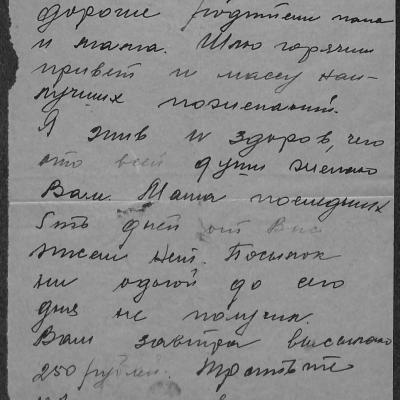 дорогие родители папа
и мама. Шлю горячий
привет и массу наи-
лучших пожеланий.
Я жив и здоров, чего
ото всей души желаю
Вам. Мама последних
5ть дней от Вас
писем нет. Посылок
ни одной до сего
дня не получил.
Вам завтра высылаю
250 рублей. Тратьте